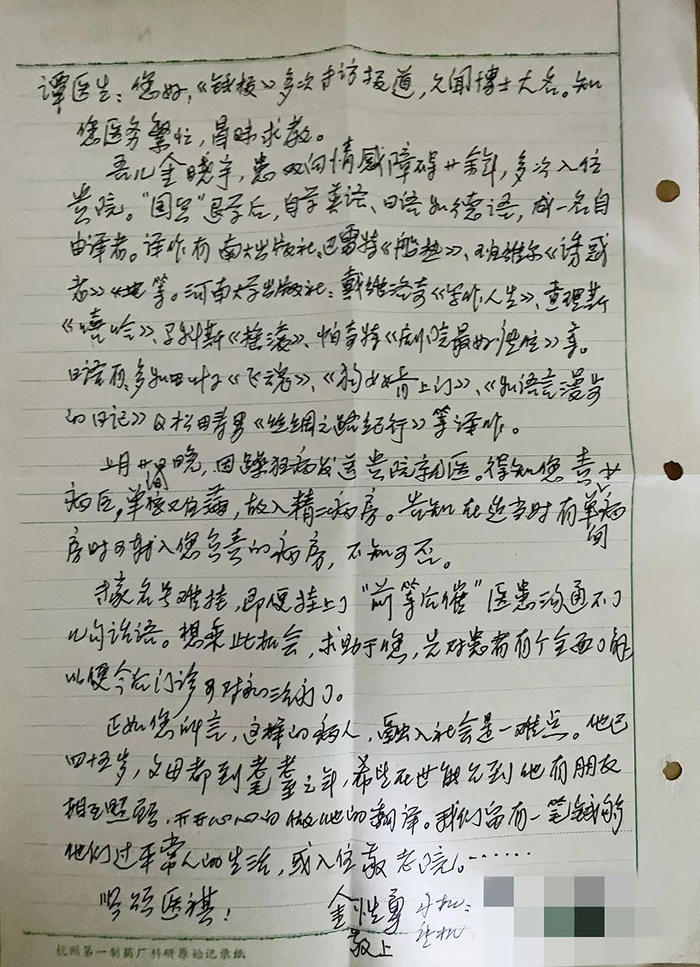 谭医生：您好，《钱报》多次专访报道，久闻博士大名。知
您医务繁忙，冒昧求教。
吾儿金晓宇，患双向情感障碍廿余年，多次入住
贵院。“国卫”退学后，自学英语、日语和德语，成一名自
由译者。译作有南大出版社：巴雷特《船热》、班维尔《诱惑
者》等。河南大学出版社：戴维洛奇《写作人生》、查理斯
《嘻哈》、《摇滚》、帕奇特《剧院最好座位》等。
日语有多和田叶子《飞魂》、《狗女婿上门》、《和语言漫步
的日记》及松田寿男《丝绸之路纪行》等译作。
上月廿晚，因躁狂病发送贵院就医。得知您责
病区，单间又住满，故入精二病房。告知在适当时有单间病
房时可转入您负责的病房，不知可否。
专家名号难挂，即便挂上了“前等后催”医患沟通不了
几句话语。想乘此机会，求助于您，先对患者有个全面了解
以便今后门诊可对和治病了。
正如您所言，这样的病人，融入社会是一难点。他已
四十五岁，父母都到耄耋之年，希望在世能见到他有朋友
相互照顾，开开心心的做他的翻译。我们留有一笔钱够
他们过平常人的生活，或入住敬老院。……
坚颂医祺！ 金性勇 手机：
敬上
杭州第一制药厂科研原始记录纸